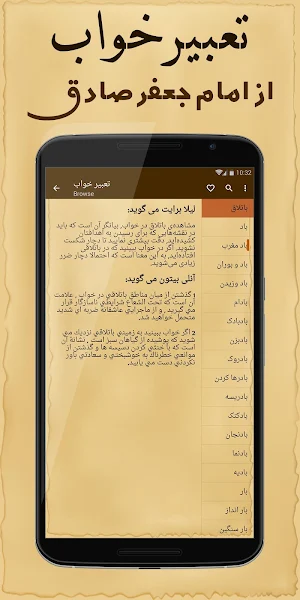 تعبیر خواب
از امام جعفر صادق
10:32
تعبیر خواب
Browse
لیلا برایت می گوید:
مشاهده‌ی باتلاق در خواب، بیانگر آن است که باید
در نقشه‌هایی که برای رسیدن به اهدافتان
کشیده‌اید، دقت بیشتری نمایید تا دچار شکست
نشوید. اگر در خواب ببینید که در باتلاقی
افتاده‌اید، به این معنا است که احتمالا دچار ضرر
زیادی می‌شوید.
آنلی بیتون می گوید:
1 گذشتن از میان مناطق باتلاقی در خواب ، علامت
آن است که تحت الشعاع شرایطی ناسازگار قرار
می گیرید. و از ماجرایی عاشقانه ضربه ای شدید
متحمل خواهید شد.
2 اگر خواب ببینید به زمینی باتلاقی نزدیک می
شوید که پوشیده از گیاهان سبز است ، نشانة آن
است که با خنثی کردن دسیسه ها و گذشتن از
موانعی خطرناک به خوشبختی و سعادتی باور
نکردنی دست می یابید.
باتلاق
باد
باد مغرب
باد و بوران
باد وزیدن
بادام
بادبادک
بادبزن
بادروک
بادرها کردن
بادریسه
بادکنک
بادنجان
بادنما
بادیه
بار
بار انداز
بار سنگین